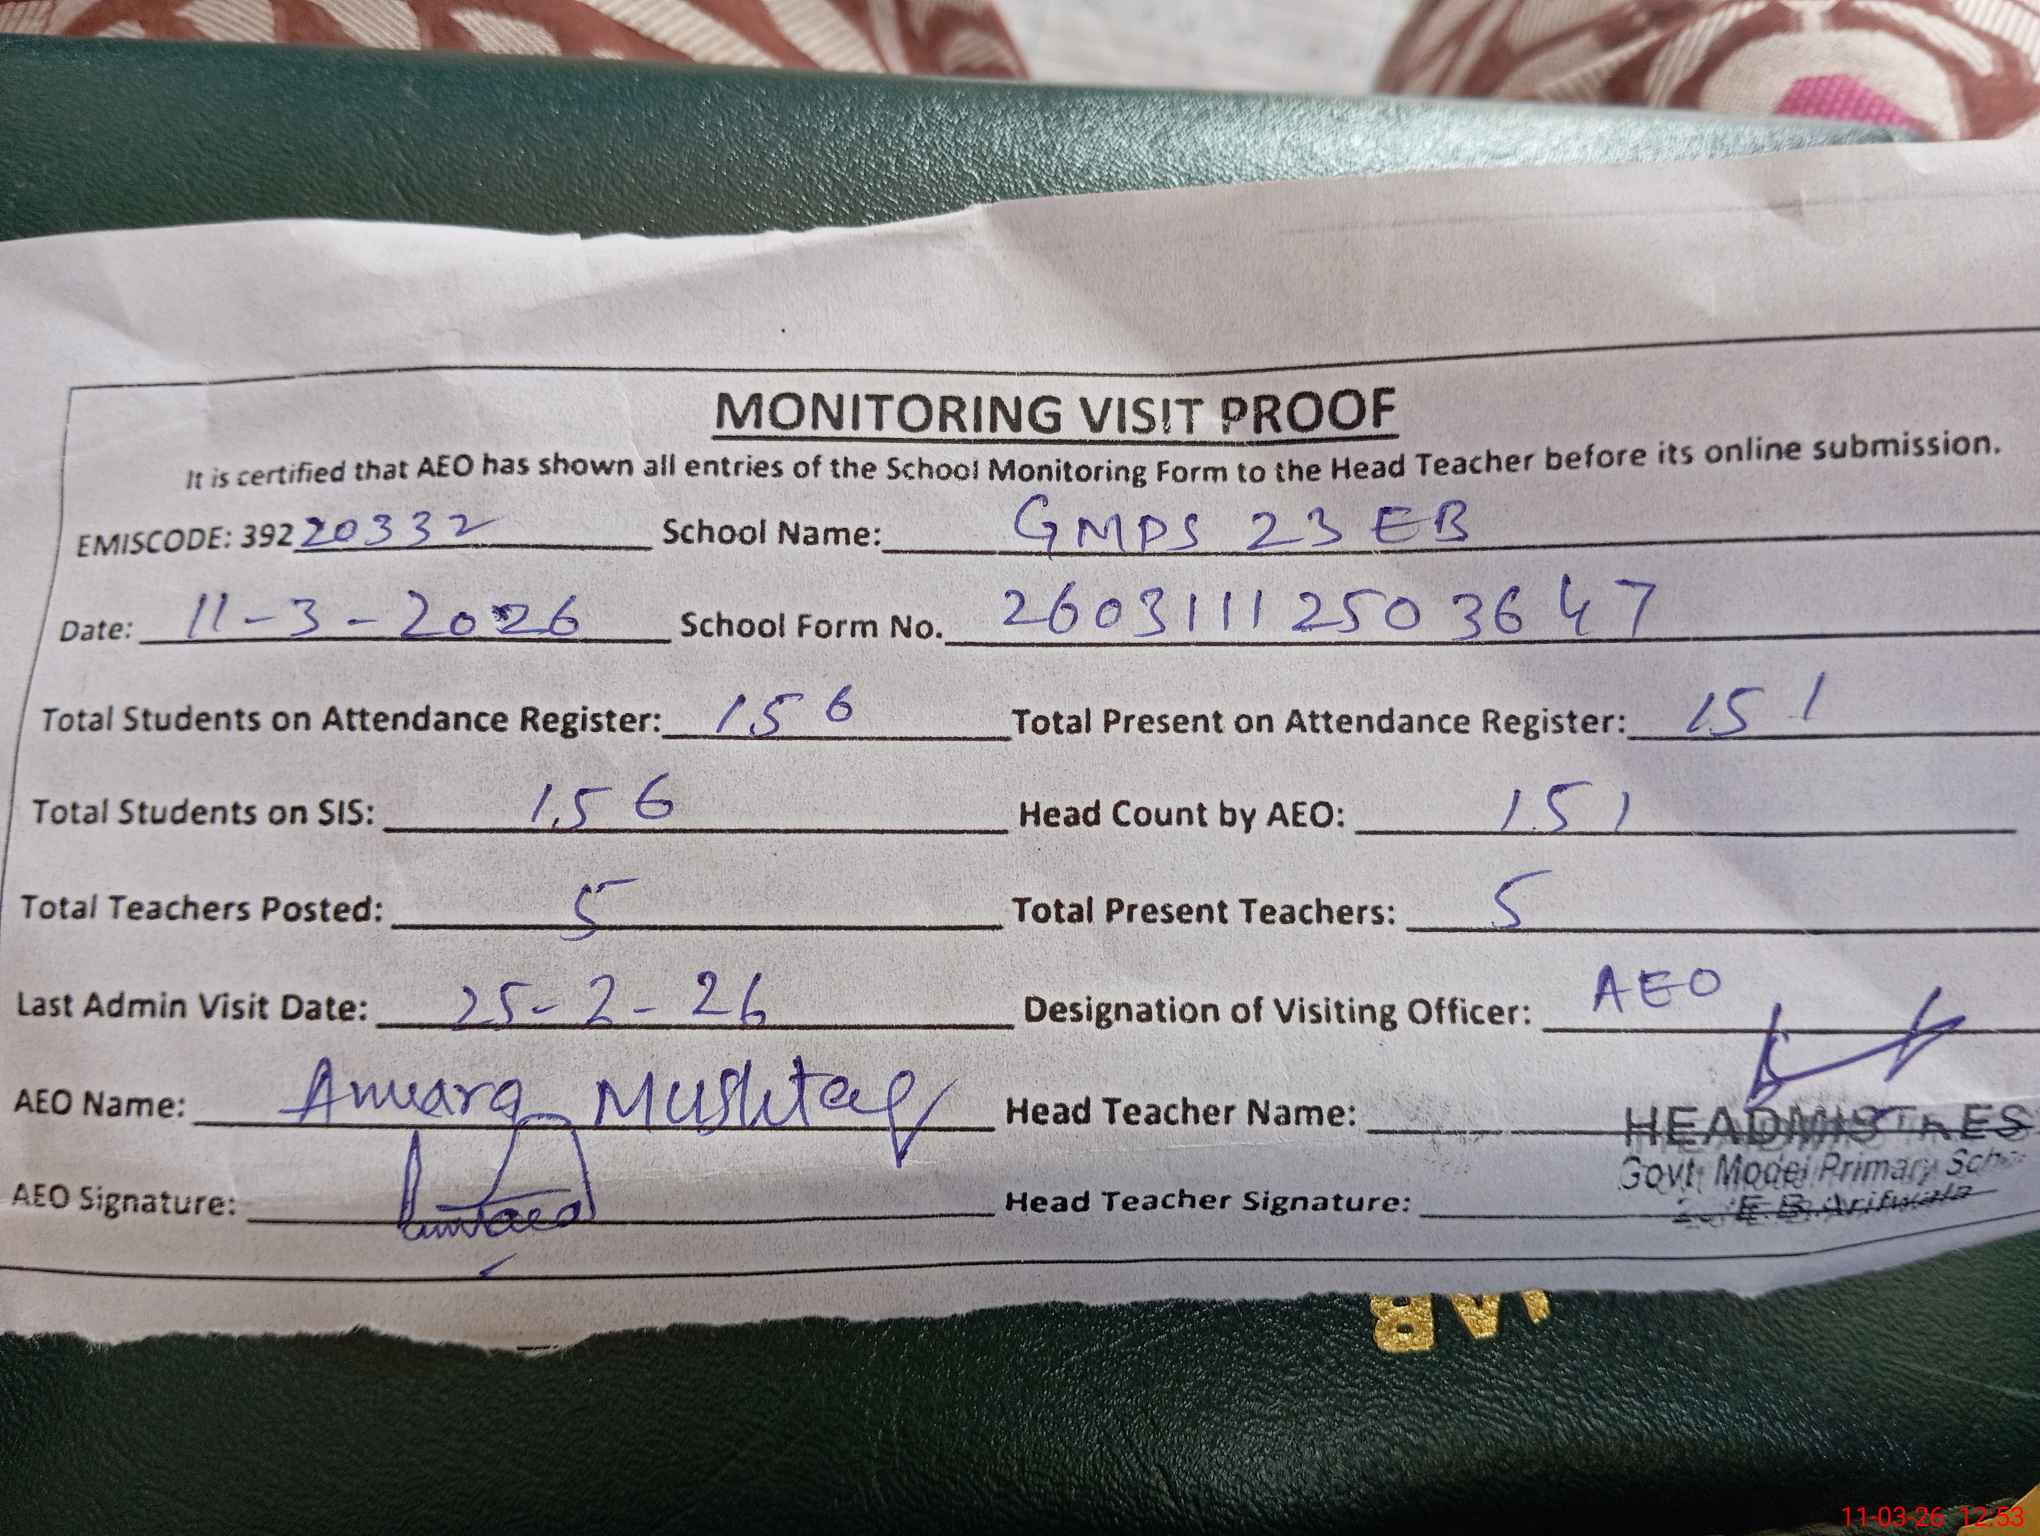 MONITORING VISIT PROOF
It is certified that AEO has shown all entries of the School Monitoring Form to the Head Teacher before its online submission.
EMISCODE: 39220332 School Name: GMPS 23 EB
Date: 11-3-2026 School Form No. 26031112503647
Total Students on Attendance Register: 156 Total Present on Attendance Register: 151
Total Students on SIS: 156 Head Count by AEO: 151
Total Teachers Posted: 5 Total Present Teachers: 5
Last Admin Visit Date: 25-2-26 Designation of Visiting Officer: AEO
AEO Name: Mushtaq Head Teacher Name:
HEADMISTRES
Govt. Model Primary
AEO Signature: Head Teacher Signature:
E.B. Arifwala
11-03-26 12:53